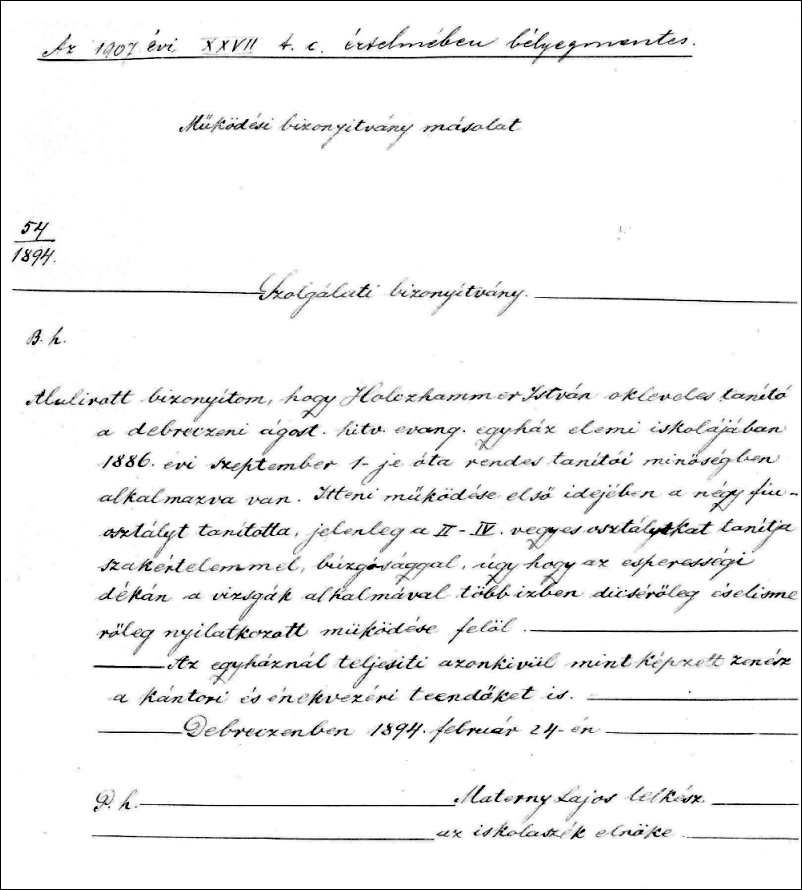 Az 1907. évi XXVII t. c. értelmében bélyegmentes.
Működési bizonyitvány másolat
54
1894.
Szolgálati bizonyítvány.
B. h.
Alulirott bizonyítom, hogy Holczhammer István okleveles tanító
a debreczeni ágost. hitv. evang. egyház elemi iskolájában
1886. évi szeptember 1-je óta rendes tanítói minőségben
alkalmazva van. Itteni működése első idejében a négy fiu-
osztályt tanította, jelenleg a II-IV. vegyes osztályokat tanítja
szakértelemmel, búzgósággal, úgy hogy az esperességi
dékán a vizsgák alkalmával több izben dicsérőleg és elisme
rőleg nyilatkozott működése felöl.
Az egyháznál teljesiti azonkivül mint képzett zenész
a kántori és énekvezéri teendőket is.
Debreczenben 1894. február 24-én
P. h. Materny Lajos lelkész
az iskolaszék elnöke